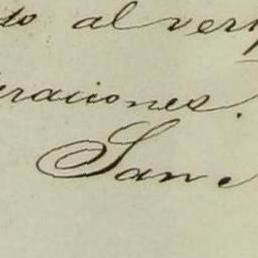 do al veri
eraciones.
San